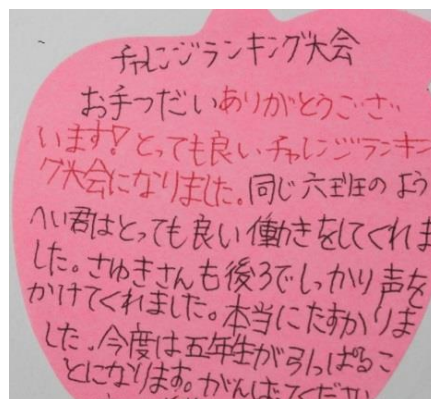 チャレンジランキング大会
お手つだいありがとうござ
います!とっても良いチャレンジランキン
グ大会になりました。同じ六班のよう
へい君はとっても良い働きをしてくれま
した。さゆきさんも後ろでしっかり声を
かけてくれました。本当にたすかりま
した。今度は五年生が引っぱるこ
とになります。がんばってくださ